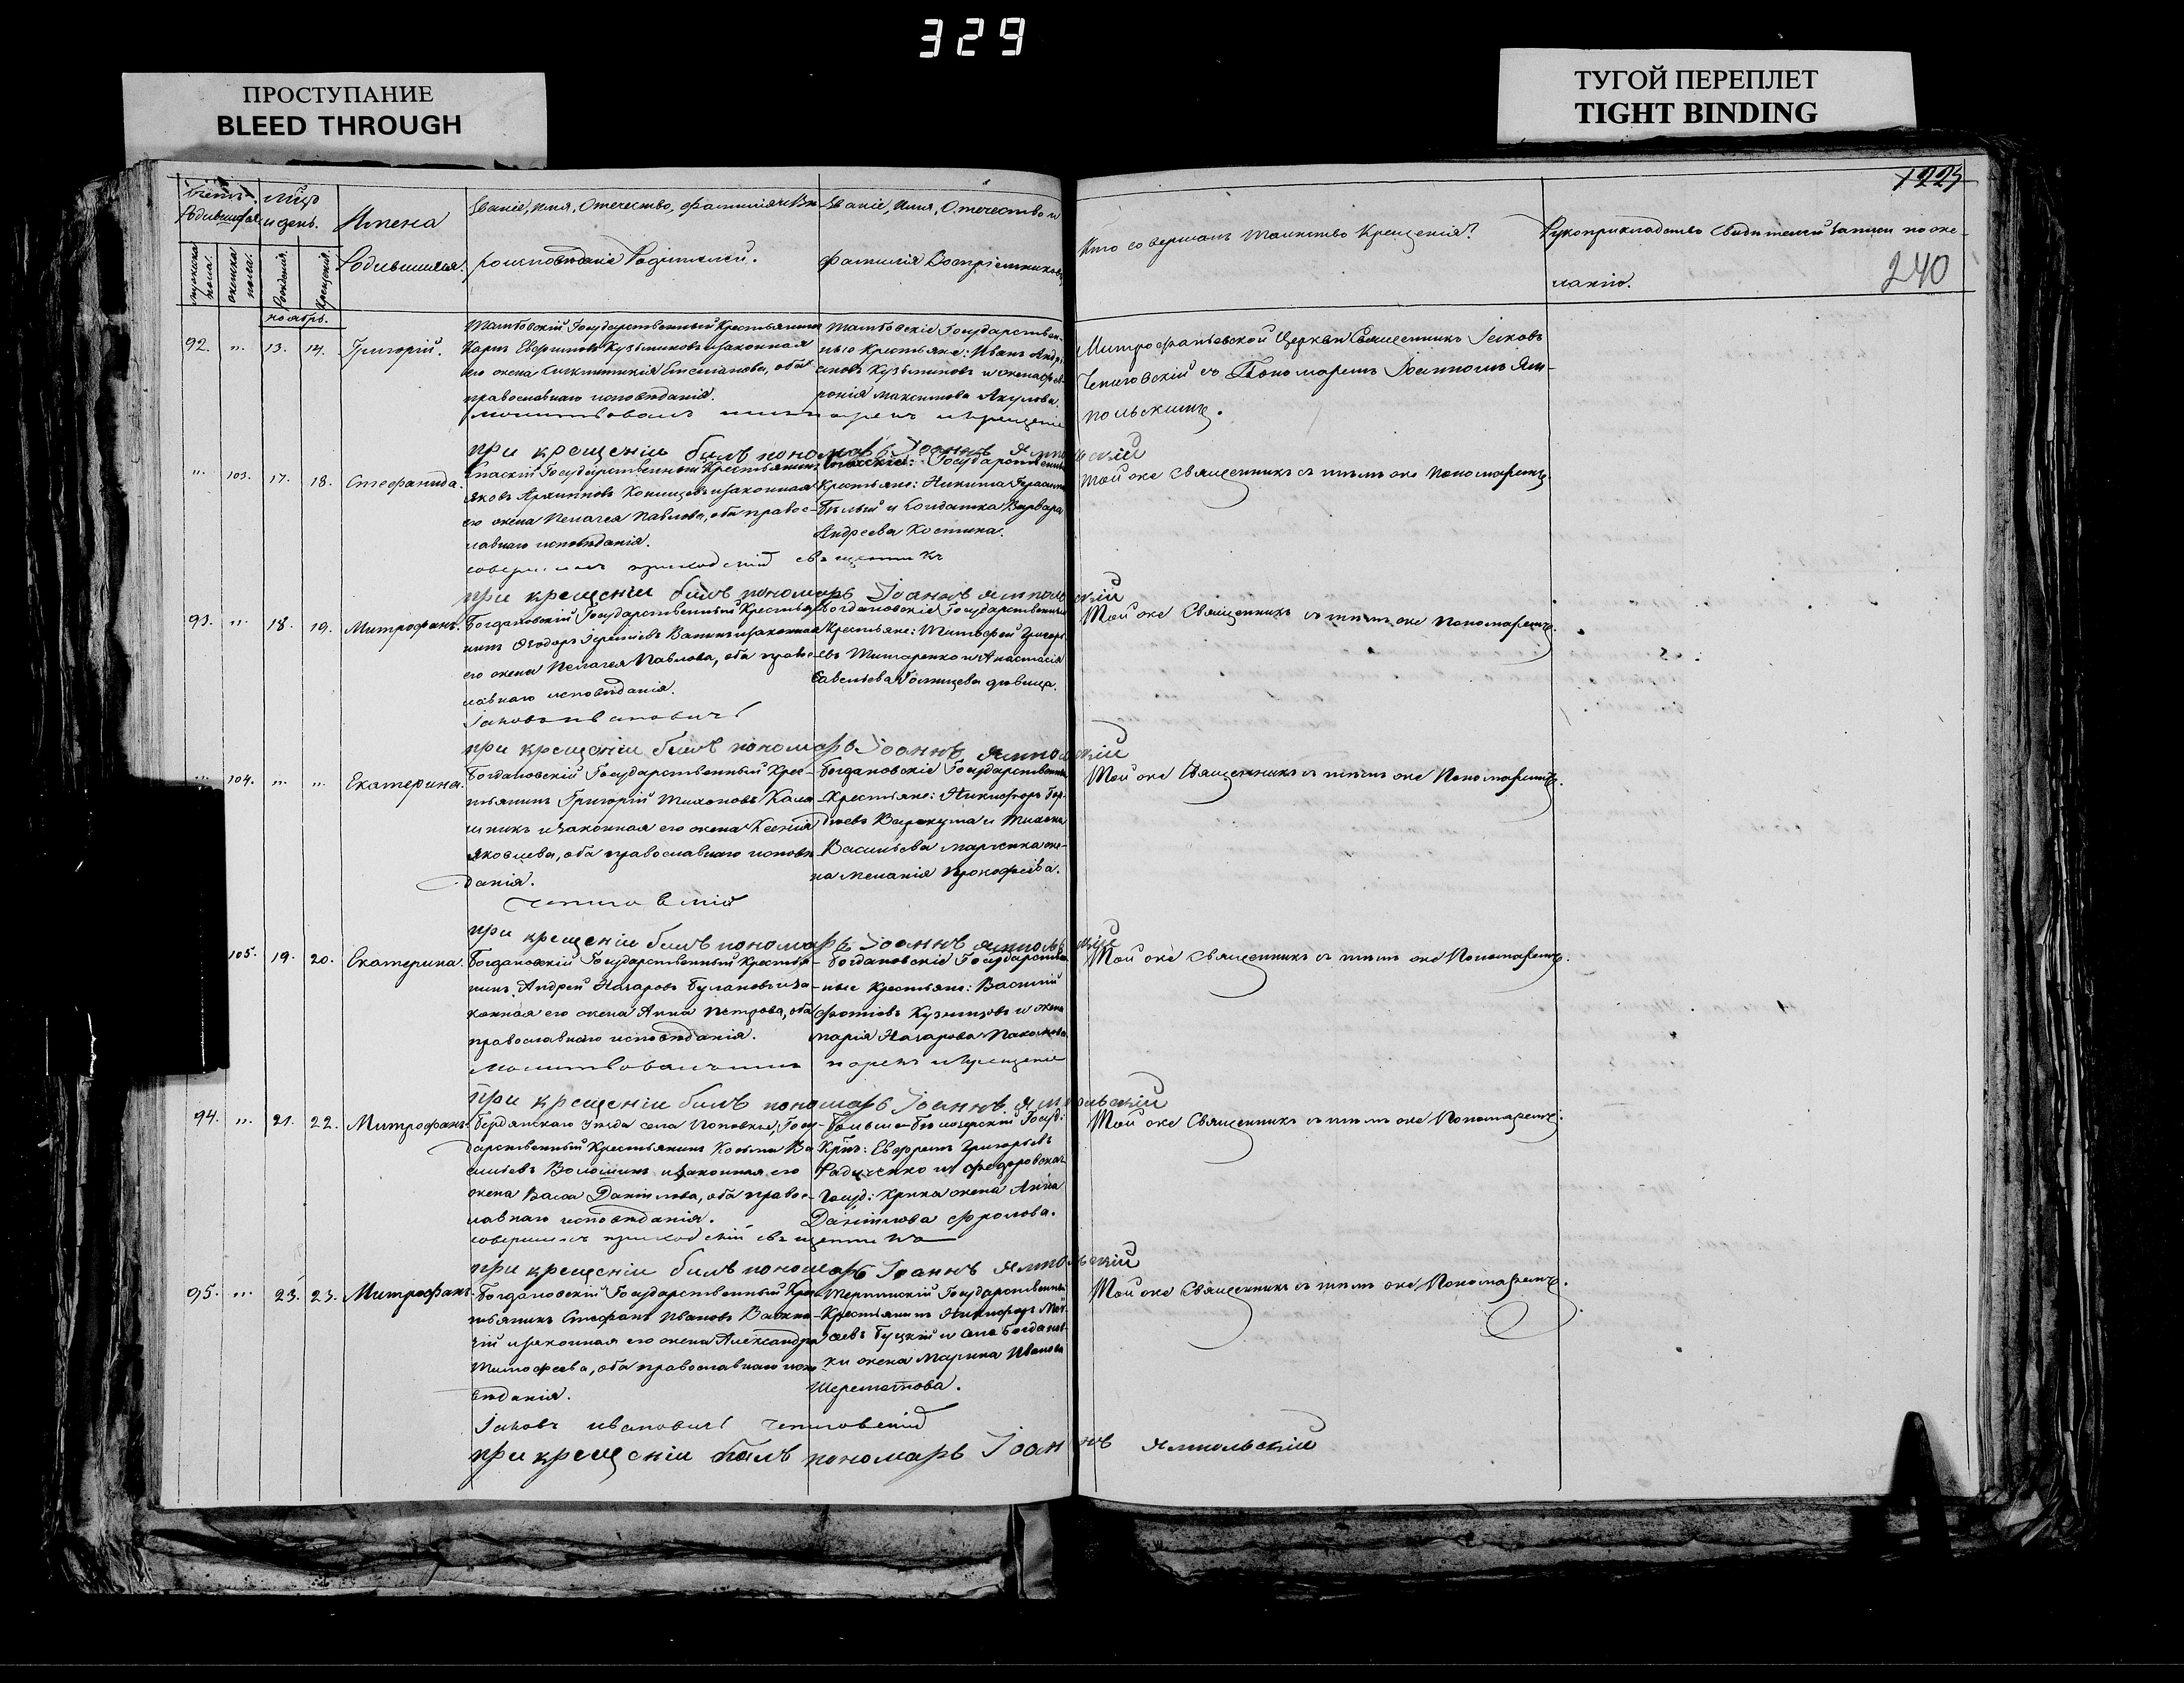 329
ПРОСТУПАНИЕ
BLEED THROUGH
ТУГОЙ ПЕРЕПЛЕТ
TIGHT BINDING
1223
240
Счетъ родившихся
мѣсяцъ и день.
мужеска пола.
женска пола.
Рожденія.
Крещенія.
Имена
Родившихся.
Званіе, имя, Отечество, фамилія и Вѣ-
роисповѣданіе Родителей.
Званіе, Имя, Отечество и
фамилія Воспріемниковъ
Кто совершалъ Таинство Крещенія?
Рукоприкладство Свидѣтелей записи по же-
ланію.
ноябрь.
92. " 13. 14. Григорій.
Тамбовскій Государственный Крестьянинъ
Карпъ Кузьминовъ и законная
его жена Степанова, оба
православнаго исповѣданія.
Тамбовскіе Государствен-
ные Крестьяне: Иванъ Андре-
яновъ Кузьминовъ и жена Фев-
ронія Максимова Акулова.
Митрофаньевской Церкви Священникъ Іаковъ
Чепиговскій съ Пономаремъ Іоанномъ Ям-
польскимъ.
молитвовалъ имя нарекъ и крещеніе
при крещеніи былъ пономарь Іоаннъ Ямпольскій
" 103. 17. 18. Стефанида.
Спаскій Государственный Крестьянинъ
Яковъ Архиповъ и законная
его жена Пелагея Павлова, оба право-
лавнаго исповѣданія.
Государственные
Крестьяне: Никита Герасимовъ
Бѣлый и Солдатка Варвара
Андреева Костина.
Той же Священникъ съ тѣмъ же Пономаремъ.
совершилъ приходскій священникъ
при крещеніи былъ пономарь Іоаннъ Ямпольскій
93. " 18. 19. Митрофанъ.
Богдановскій Государственный Крестья-
нинъ Ѳеодоръ и законная
его жена Пелагея Павлова, оба право-
лавнаго исповѣданія.
Богдановскіе Государственные
Крестьяне: Тимофей Григорь-
евъ Титаренко и Анастасія
Савельева дѣвица.
Той же Священникъ съ тѣмъ же Пономаремъ.
Іаковъ Ивановичъ
при крещеніи былъ пономарь Іоаннъ Ямпольскій
" 104. " " Екатерина.
Богдановскій Государственный Крес-
тьянинъ Григорій Тихоновъ Кала-
шникъ и законная его жена Ксенія
Яковлева, оба православнаго исповѣ-
данія.
Богдановскіе Государственные
Крестьяне: Никифоръ Гор-
дѣевъ Вакула и
Васильева Марченка же-
на Меланія Прокофьева.
Той же Священникъ съ тѣмъ же Пономаремъ.
Чепиговскій
при крещеніи былъ пономарь Іоаннъ Ямпольскій
105. 19. 20. Екатерина.
Богдановскій Государственный Крестья-
нинъ Андрей Назаровъ Булановъ и за-
конная его жена Анна Петрова, оба
православнаго исповѣданія.
Богдановскіе Государствен-
ные Крестьяне: Василій
Фотіовъ Кузнецовъ и жена
Марія Назарова Пахомова.
Той же Священникъ съ тѣмъ же Пономаремъ.
молитвовалъ имя нарекъ и крещеніе
при крещеніи былъ пономарь Іоаннъ Ямпольскій
94. " 21. 22. Митрофанъ.
Бердянскаго Уѣзда села Поповки, Госу-
дарственный Крестьянинъ Косьма Ва-
сильевъ Волошинъ и законная его
жена Васса Даніилова, оба право-
лавнаго исповѣданія.
Больше-Бѣлозерскій Госуд:
Крнъ: Ефремъ Григорьевъ
Радченко и Федоровскаго
Госуд: Крнна жена Анна
Даніилова Фролова.
Той же Священникъ съ тѣмъ же Пономаремъ.
совершилъ приходскій священникъ
при крещеніи былъ пономарь Іоаннъ Ямпольскій
95. " 23. 23. Митрофанъ.
Богдановскій Государственный Крес-
тьянинъ Стефанъ Ивановъ
и законная его жена Александра
Тимофеева, оба православнаго испо-
вѣданія.
Терпинскій Государственный
Крестьянинъ Никифоръ Мои-
сеевъ Буцкій и села Богданов-
ки жена Марина Иванова
Шереметова.
Той же Священникъ съ тѣмъ же Пономаремъ.
Іаковъ Ивановичъ Чепиговскій
при крещеніи былъ пономарь Іоаннъ Ямпольскій